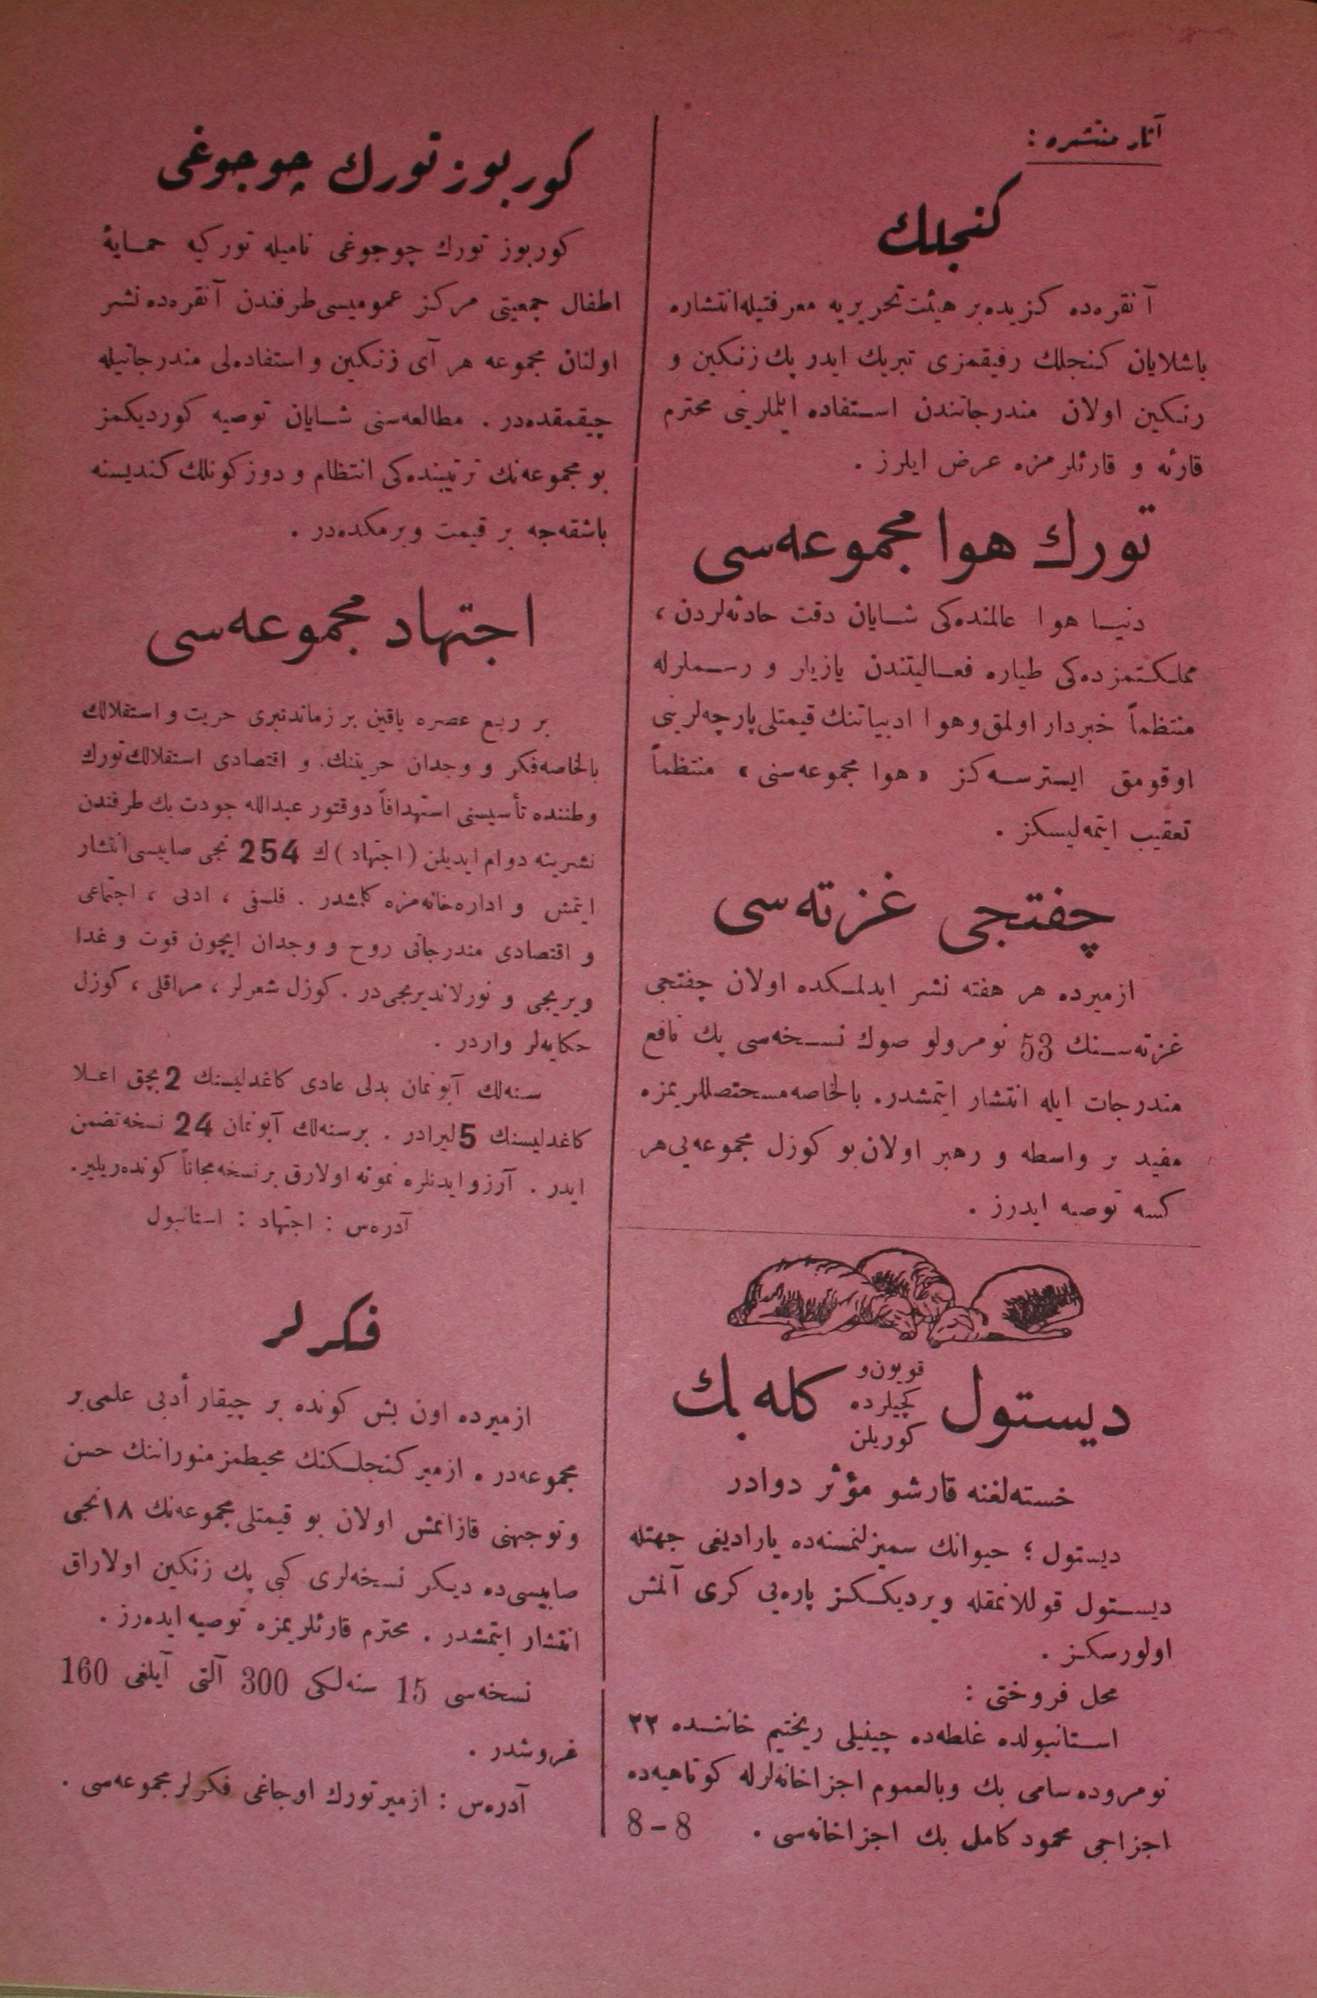 آثار منتشره :
كنجلك
آنقره‌ده كزيده بر هيئت تحريريه معرفتيله انتشاره
باشلايان كنجلك رفيقمزى تبريك ايدر پك زنكين و
رنكين اولان مندرجاتندن استفاده ايلملرينى محترم
قارئه و قارئلرمزه عرض ايلرز .
تورك هوا مجموعه‌سى
دنيا هوا عالمنده‌كى شايان دقت حادثه‌لردن ،
مملكتمزده‌كى طياره فعاليتندن يازيلر و رسملرله
منتظماً خبردار اولمق و هوا ادبياتنك قيمتلى پارچه‌لرينى
اوقومق ايسترسه‌كز « هوا مجموعه‌سنى » منتظماً
تعقيب ايتمه‌ليسكز .
چفتجى غزته‌سى
ازميرده هر هفته نشر ايدلمكده اولان چفتجى
غزته‌سنك 53 نومرولو صوك نسخه‌سى پك نافع
مندرجات ايله انتشار ايتمشدر. بالخاصه مستحصللريمزه
مفيد بر واسطه و رهبر اولان بو كوزل مجموعه‌يى هر
كسه توصيه ايدرز .
ديستول قويون و كچيلرده كوريلن كله بك
خسته‌لغنه قارشو مؤثر دوادر
ديستول ؛ حيوانك سميزلنمسنه‌ده ياراديغى جهتله
ديستول قوللانمقله ويرديككز پاره‌يى كرى آلمش
اولورسكز .
محل فروختى :
استانبولده غلطه‌ده چينيلى ريختيم خاننده ٢٢
نومروده سامى بك وبالعموم اجزاخانه‌لرله كوتاهيه‌ده
اجزاجى محمود كامل بك اجزاخانه‌سى . 8 – 8
كوربوز تورك چوجوغى
كوربوز تورك چوجوغى ناميله توركيه حمايۀ
اطفال جمعيتى مركز عموميسى طرفندن آنقره‌ده نشر
اولنان مجموعه هر آى زنكين و استفاده‌لى مندرجاتيله
چيقمقده‌در . مطالعه‌سنى شايان توصيه كورديكمز
بو مجموعه‌نك ترتيبنده‌كى انتظام و دوزكونلك كنديسنه
باشقه‌جه بر قيمت ويرمكده‌در .
اجتهاد مجموعه‌سى
بر ربع عصره ياقين بر زماندنبرى حريت و استقلالك
بالخاصه فكر و وجدان حريتنك. و اقتصادى استقلالك تورك
وطننده تأسيسنى استهدافاً دوقتور عبدالله جودت بك طرفندن
نشرينه دوام ايديلن (اجتهاد) ك 254 نجى صاييسى انتشار
ايتمش و اداره‌خانه‌مزه كلمشدر . فلسفى ، ادبى ، اجتماعى
و اقتصادى مندرجاتى روح و وجدان ايچون قوت و غدا
ويريجى و نورلانديريجى‌در . كوزل شعرلر ، مراقلى ، كوزل
حكايه‌لر واردر .
سنه‌لك آبونمان بدلى عادى كاغدليسنك 2 بچق اعلا
كاغدليسنك 5 ليرادر . برسنه‌لك آبونمان 24 نسخه تضمن
ايدر . آرزو ايدنلره نمونه اولارق بر نسخه مجاناً كونده‌ريلير.
آدره‌س : اجتهاد : استانبول
فكرلر
ازميرده اون بش كونده بر چيقار أدبى علمى بر
مجموعه‌در . ازمير كنجلكنك محيطمز منوراننك حسن
وتوجهنى قازانمش اولان بو قيمتلى مجموعه‌نك ١٨نجى
صاييسى‌ده ديكر نسخه‌لرى كبى پك زنكين اولاراق
انتشار ايتمشدر . محترم قارئلريمزه توصيه ايده‌رز .
نسخه‌سى 15 سنه‌لكى 300 آلتى آيلغى 160
غروشدر .
آدره‌س : ازمير تورك اوجاغى فكرلر مجموعه‌سى .